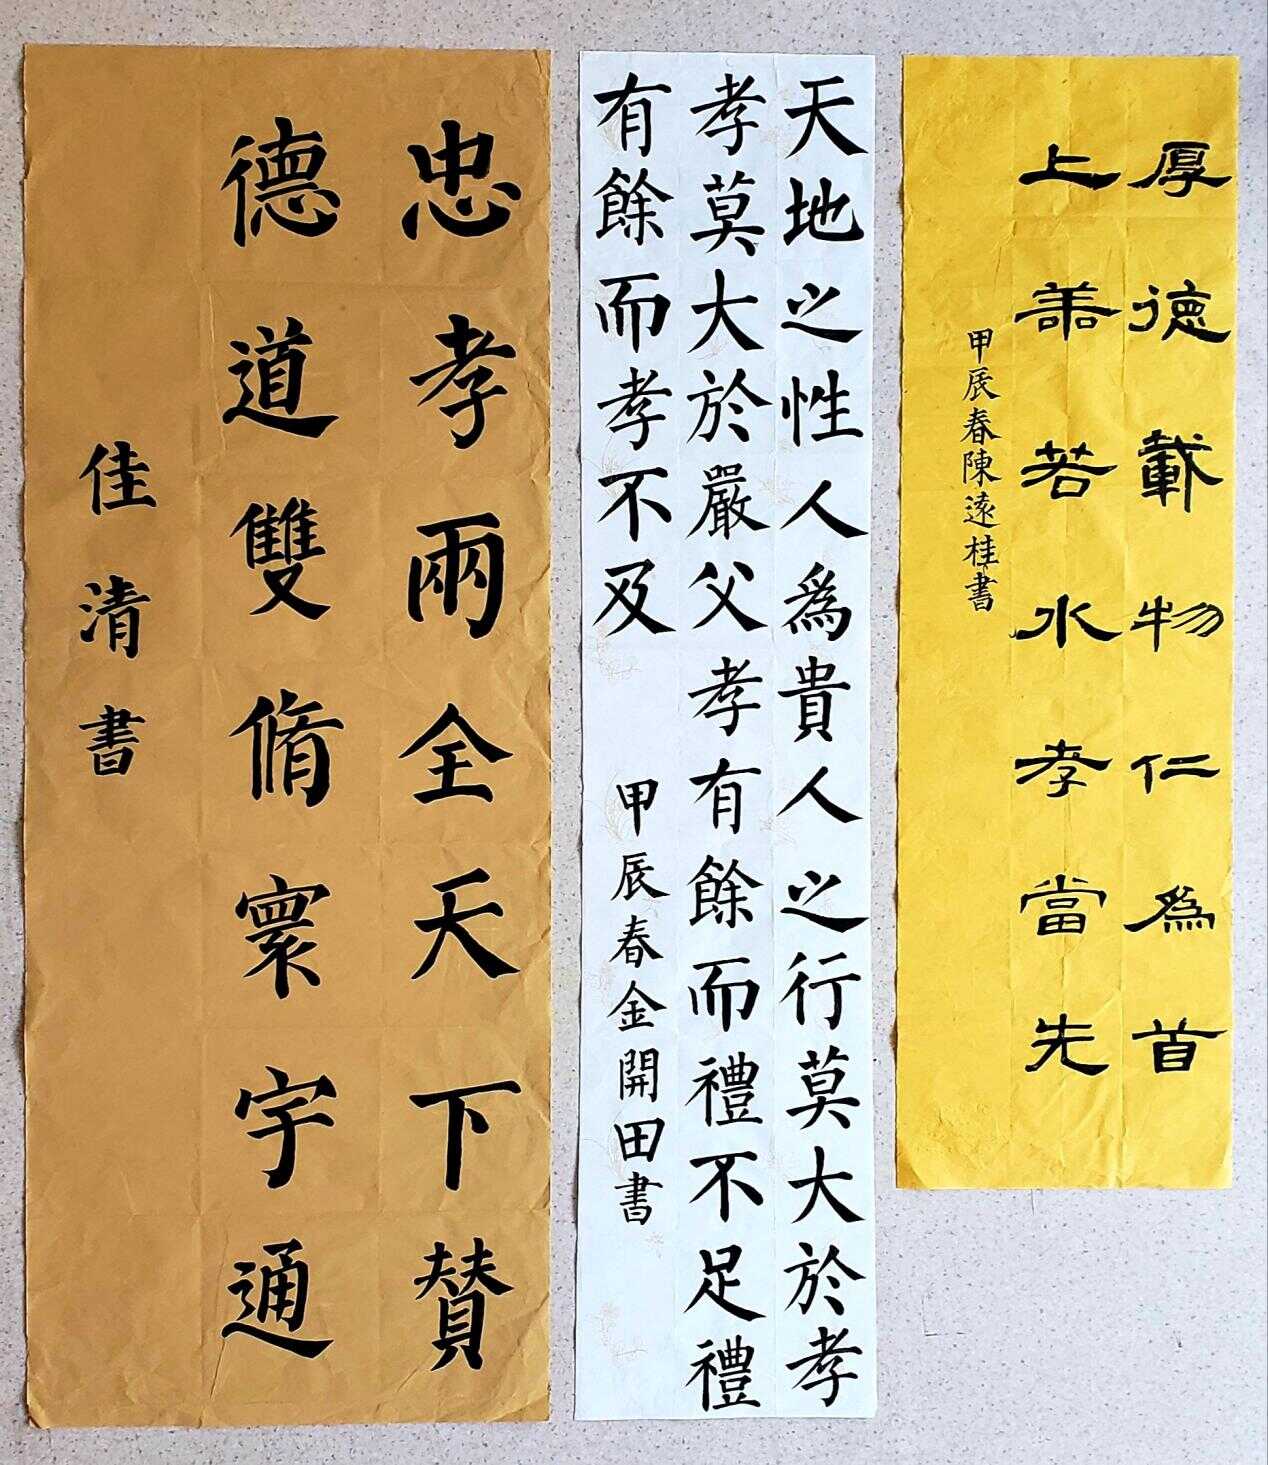 厚德載物仁為首
上善若水孝當先
甲辰春陳遠桂書
天地之性人為貴人之行莫大於孝
孝莫大於嚴父孝有餘而禮不足禮
有餘而孝不及
甲辰春金開田書
忠孝兩全天下賛
德道雙脩寰宇通
佳清書